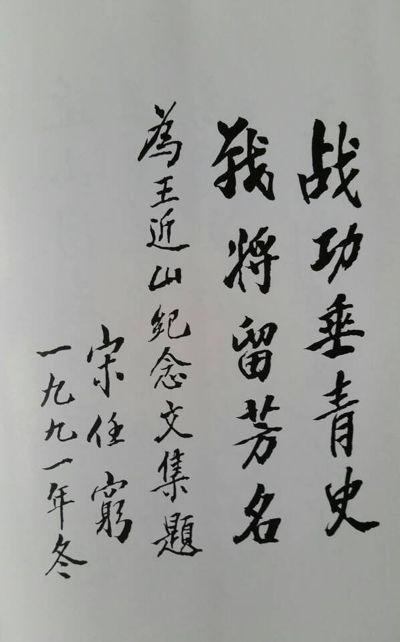 战功垂青史
战将留芳名
為王近山纪念文集题
宋任窮
一九九一年冬